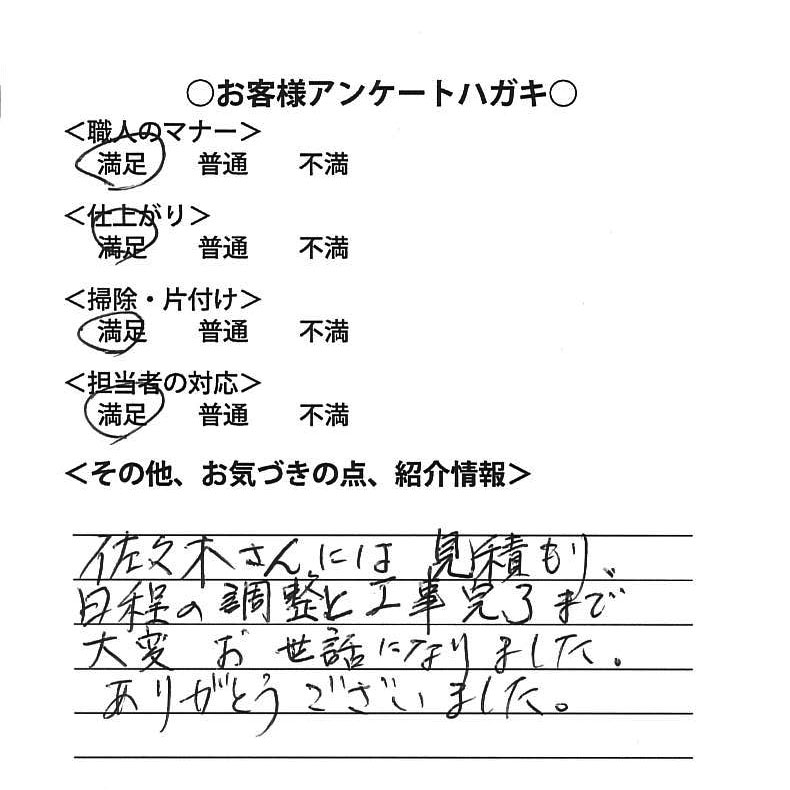 ○お客様アンケートハガキ○
＜職人のマナー＞
満足 普通 不満
＜仕上がり＞
満足 普通 不満
＜掃除・片付け＞
満足 普通 不満
＜担当者の対応＞
満足 普通 不満
＜その他、お気づきの点、紹介情報＞
佐々木さんには 見積もり、
日程の調整と工事完了まで
大変 お世話になりました。
ありがとうございました。